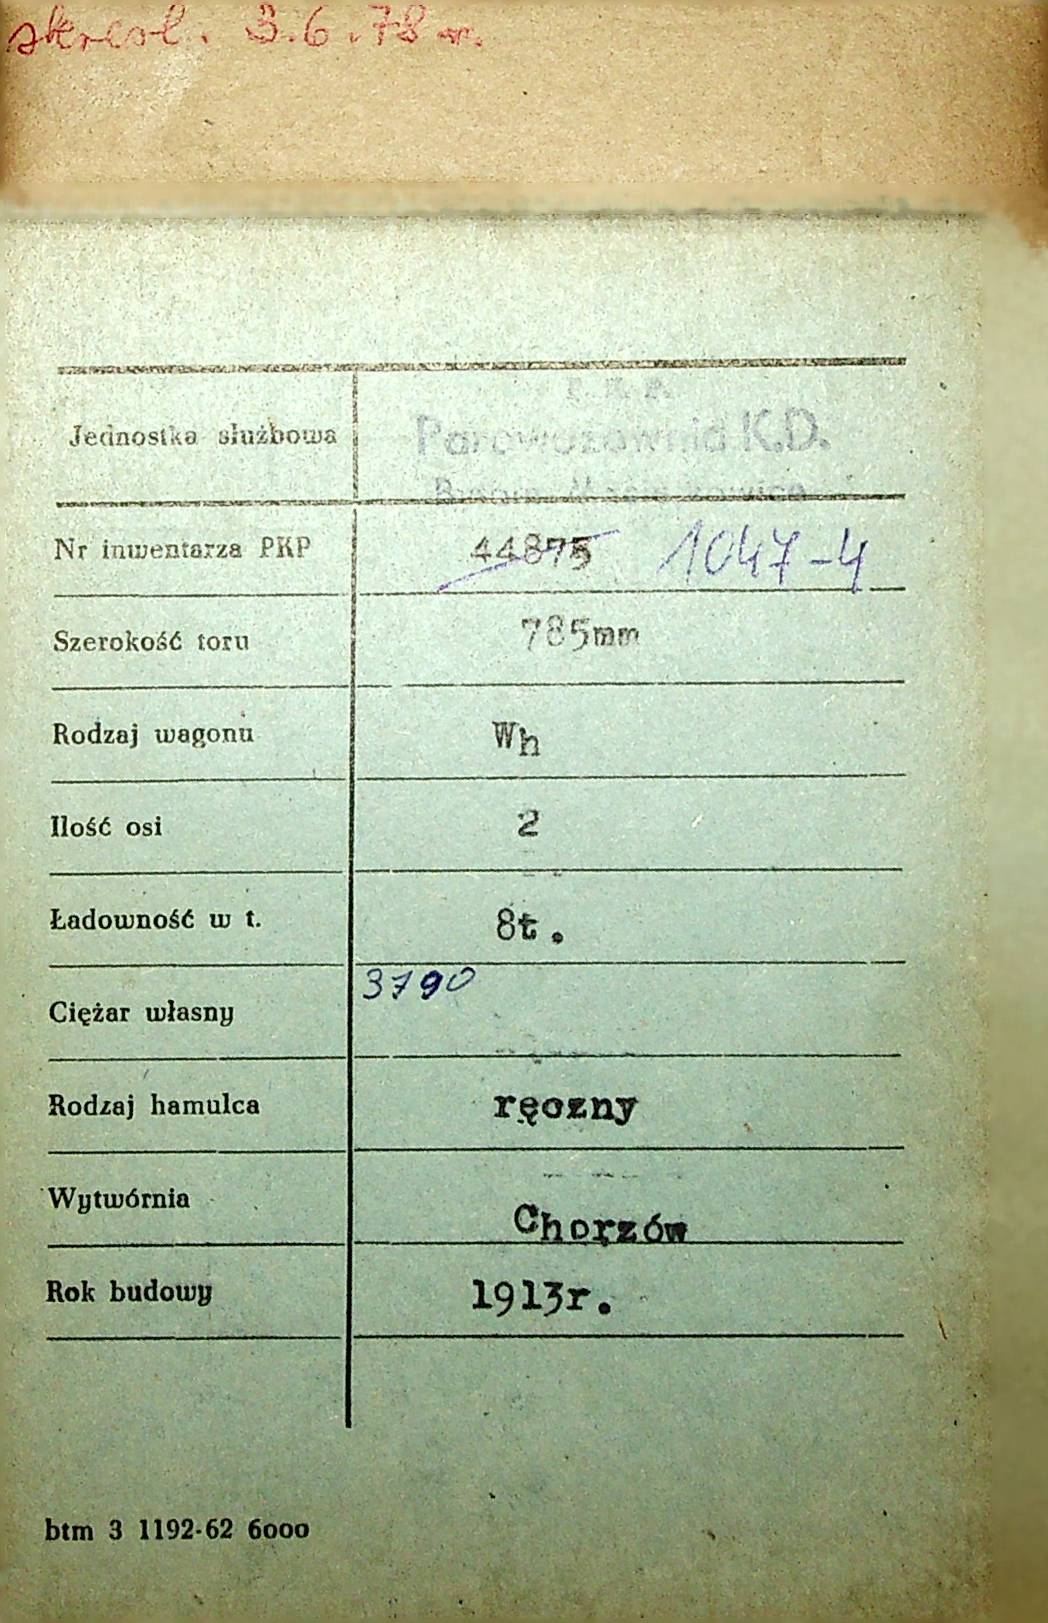 skreśl. 3.6.78 r.
P. K. P.
Jednostka służbowa Parowozownia K.D.
Nr inwentarza PKP 44875 1047-4
Szerokość toru 785mm
Rodzaj wagonu Wh
Ilość osi 2
Ładowność w t. 8t.
Ciężar własny 3790
Rodzaj hamulca ręczny
Wytwórnia Chorzów
Rok budowy 1913r.
btm 3 1192-62 6000